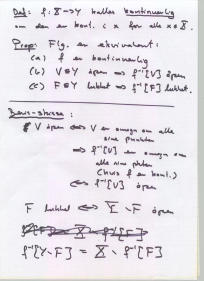 Def: f: X → Y kalles kontinuerlig
om den er kont. i x for alle x ∈ X.
Prop: Følg. er ekvivalent:
(a) f er kontinuerlig
(b) V ⊆ Y åpen ⇒ f⁻¹[V] åpen
(c) F ⊆ Y lukket ⇒ f⁻¹[F] lukket.
Bevis-skisse:
V åpen ⇔ V er omegn om alle
sine punkter
⇒ f⁻¹[V] er omegn om
alle sine pkter
(hvis f er kont.)
⇔ f⁻¹[V] åpen
F lukket ⇔ Y \ F åpen
f⁻¹[Y \ F] = X \ f⁻¹[F]